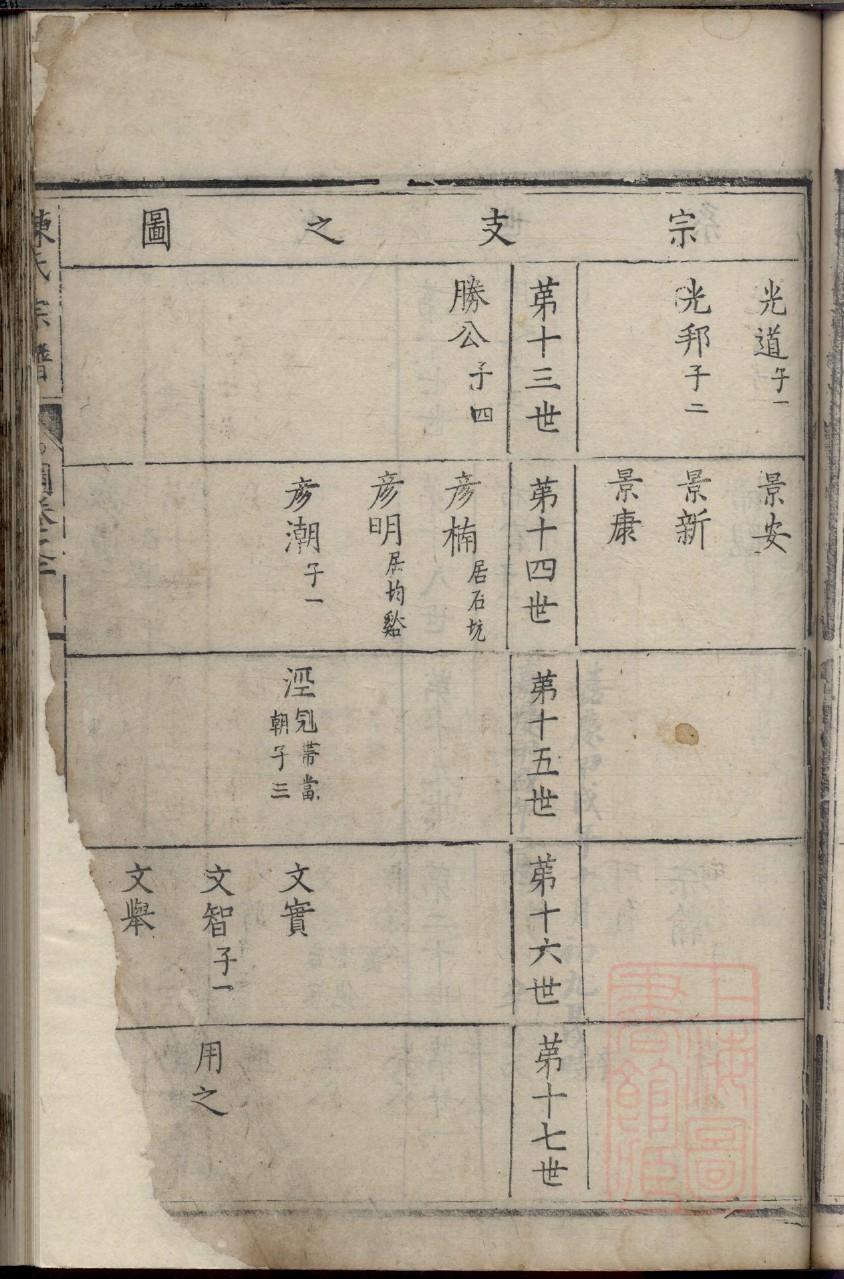 宗支之圖
光道子一
光邦子二
景安
景新
景康
第十三世
第十四世
第十五世
第十六世
第十七世
勝公子四
彦楠居石坑
彦明居均谿
彦潮子一
涇
朝子三
文實
文智子一
文舉
用之
陳氏宗譜
圖卷之
上海圖書館藏